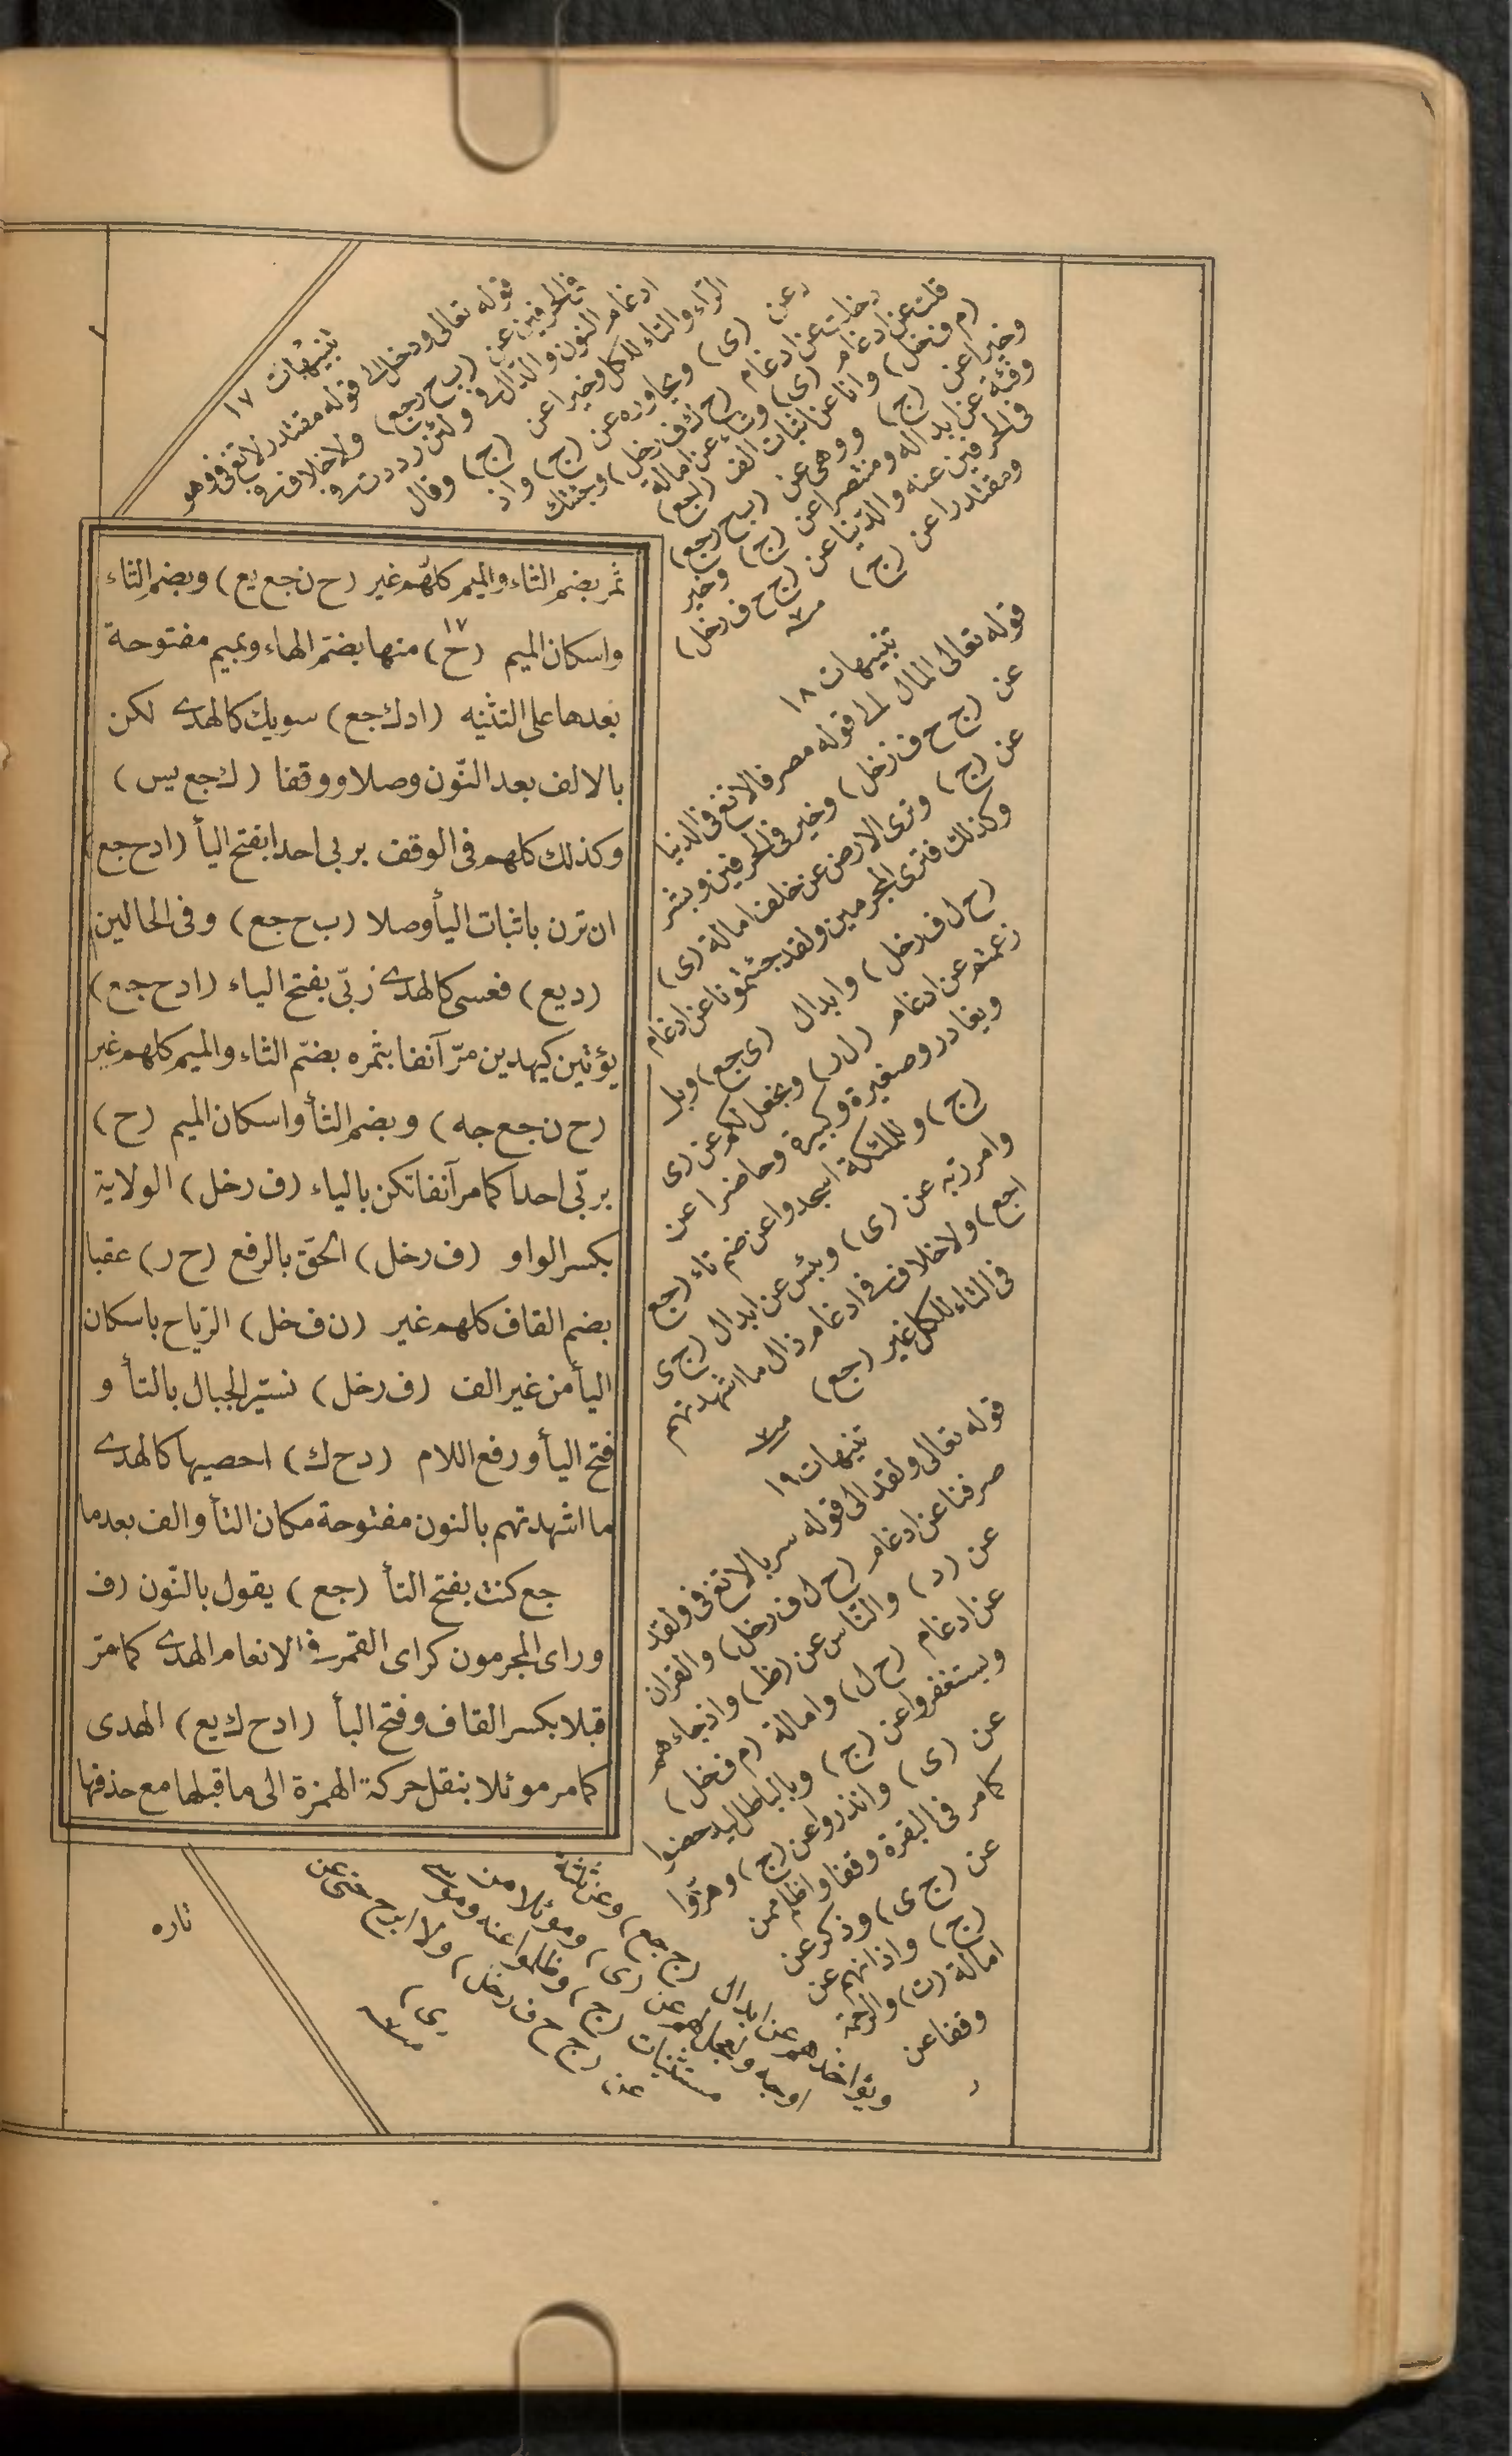 ثمر بضم الثاء والميم كلهم غير (ح ن جع يع) وبضم الثاء
واسكان الميم (ح) ١٧ منها بضم الهاء وبميم مفتوحة
بعدها على التثنيه (ادك جع) سويك كالهدى لكن
بالالف بعد النّون وصلا ووقفا (ك جع يس)
وكذلك كلهم فى الوقف بربى احدا بفتح اليأ (ادح جع)
ان ترن باثبات اليأ وصلا (ب ح جع) وفى الحالين
(د يع) فعسى كالهدى ربّى بفتح الياء (ادح جع)
يؤتين كيهدين مرّ آنفا بثمره بضمّ الثاء والميم كلهم غير
(ح ن جع جه) وبضم الثأ واسكان الميم (ح)
بربّى احدا كما مر آنفا تكن بالياء (ف رخل) الولاية
بكسر الواو (ف رخل) الحقّ بالرفع (ح ر) عقبا
بضم القاف كلهم غير (ن ف خل) الرّياح باسكان
اليأ من غير الف (ف رخل) نسيّر الجبال بالتأ و
فتح اليأ ورفع اللام (دح ك) احصيها كالهدى
ما اشهدتهم بالنون مفتوحة مكان التأ والف بعدما
جع كنت بفتح التأ (جع) يقول بالنّون (ف
وراى المجرمون كراى القمر فى الانعام الهدى كما مرّ
قبلا بكسر القاف وفتح البأ (ادح ك يع) الهدى
كما مر موئلا بنقل حركة الهمزة الى ما قبلها مع حذفها
تنبيهات ١٧
قوله تعالى ودخل الى قوله مقتدر لاتغ فى وهو
فى الحرفين عن (ب ح رجع) ولا خلاف فى
ادغام النون والدال فى ولئن رددت و
الرّاء والتاء للكل وخيرا عن (ج) وقال
عن (ى) ويحاوره عن (ج) واذ
دخلت عن ادغام (ح ك ف رخل) وجئتك
قلت عن ادغام (ى) وشاء عن امالة
(م ف خل) وانا عن اثبات الف (ا جع)
وخيرا عن (ج) ووهى عن (ب ح رجع)
وفئة عن ابداله ومنتصرا عن (ج) وخير
فى الحرفين عنه والدّنيا عن (ج ح ف رخل)
ومقتدرا عن (ج)
تنبيهات ١٨
قوله تعالى المال الى قوله مصرفا لاتغ فى الدنيا
عن (ج ح ف رخل) وخير فى الحرفين وبشر
عن (ج) وترى الارض عن خلف امالة (ى)
وكذلك فترى المجرمين ولقد جئتمونا عن ادغام
(ح ل ف رخل) وابدال (ى جع) وبل
زعمتم عن ادغام (ل ر) ونجعل لكم عن (ى
ويغادر وصغيرة وكبيرة وحاضرا عن
(ج) وللملئكة اسجدوا عن ضم تاء (جع
وامر ربّه عن (ى) وبئس عن ابدال (ج ى
جع) ولا خلاف فى ادغام ذال ما اشهدتهم
فى التاء للكل غير (جع)
تنبيهات ١٩
قوله تعالى ولقد الى قوله سربا لاتغ فى ولقد
صرفنا عن ادغام (ح ل ف رخل) والقران
عن (د) والنّاس عن (ط) واذ جاءهم
عن ادغام (ح ل) وامالة (م ف خل)
ويستغفروا عن (ج) وبالباطل ليدحضوا
عن (ى) وانذروا عن (ج) وهزؤا
كما مر فى البقرة وقفا واظلم ممن
عن (ج ى) وذكر عن
(ج) واذانهم عن
امالة (ت) والرحمة
وقفا عن
تاره